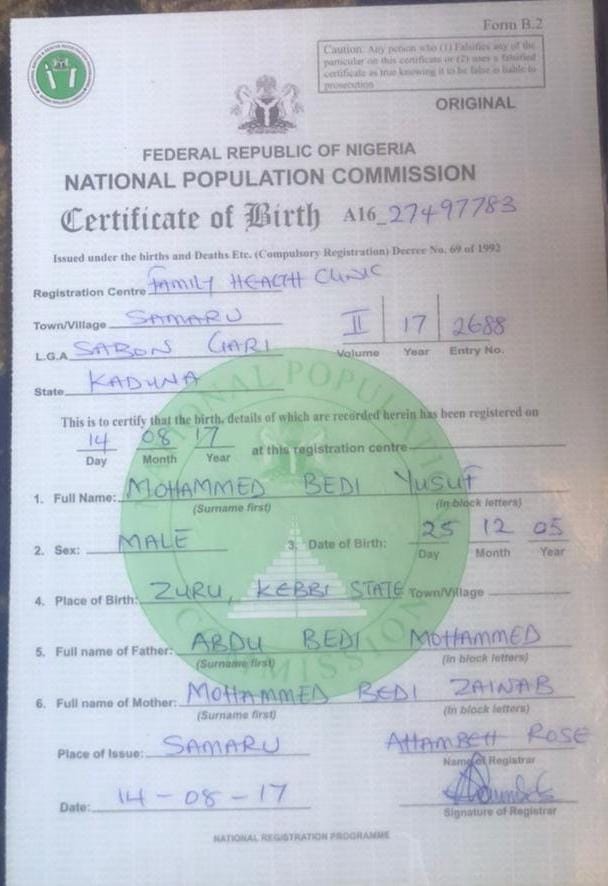 Form B.2
Caution: Any person who (1) Falsifies any of the
particular on this certificate or (2) uses a falsified
certificate as true knowing it to be false is liable to
prosecution
ORIGINAL
FEDERAL REPUBLIC OF NIGERIA
NATIONAL POPULATION COMMISSION
Certificate of Birth A16_27497783
Issued under the births and Deaths Etc. (Compulsory Registration) Decree No. 69 of 1992
Registration Centre FAMILY HEALTH CLINIC
Town/Village SAMARU
II 17 2688
Volume Year Entry No.
L.G.A SABON GARI
State KADUNA
NATIONAL POPULATION COMMISSION
This is to certify that the birth, details of which are recorded herein has been registered on
14 08 17 at this registration centre
Day Month Year
1. Full Name: MOHAMMED BEDI YUSUF
(Surname first) (In block letters)
2. Sex: MALE 3. Date of Birth: 25 12 05
Day Month Year
4. Place of Birth: ZURU, KEBBI STATE Town/Village
5. Full name of Father: ABDU BEDI MOHAMMED
(Surname first) (In block letters)
6. Full name of Mother: MOHAMMED BEDI ZAINAB
(Surname first) (In block letters)
Place of Issue: SAMARU ROSE
Name of Registrar
Date: 14-08-17
Signature of Registrar
NATIONAL REGISTRATION PROGRAMME